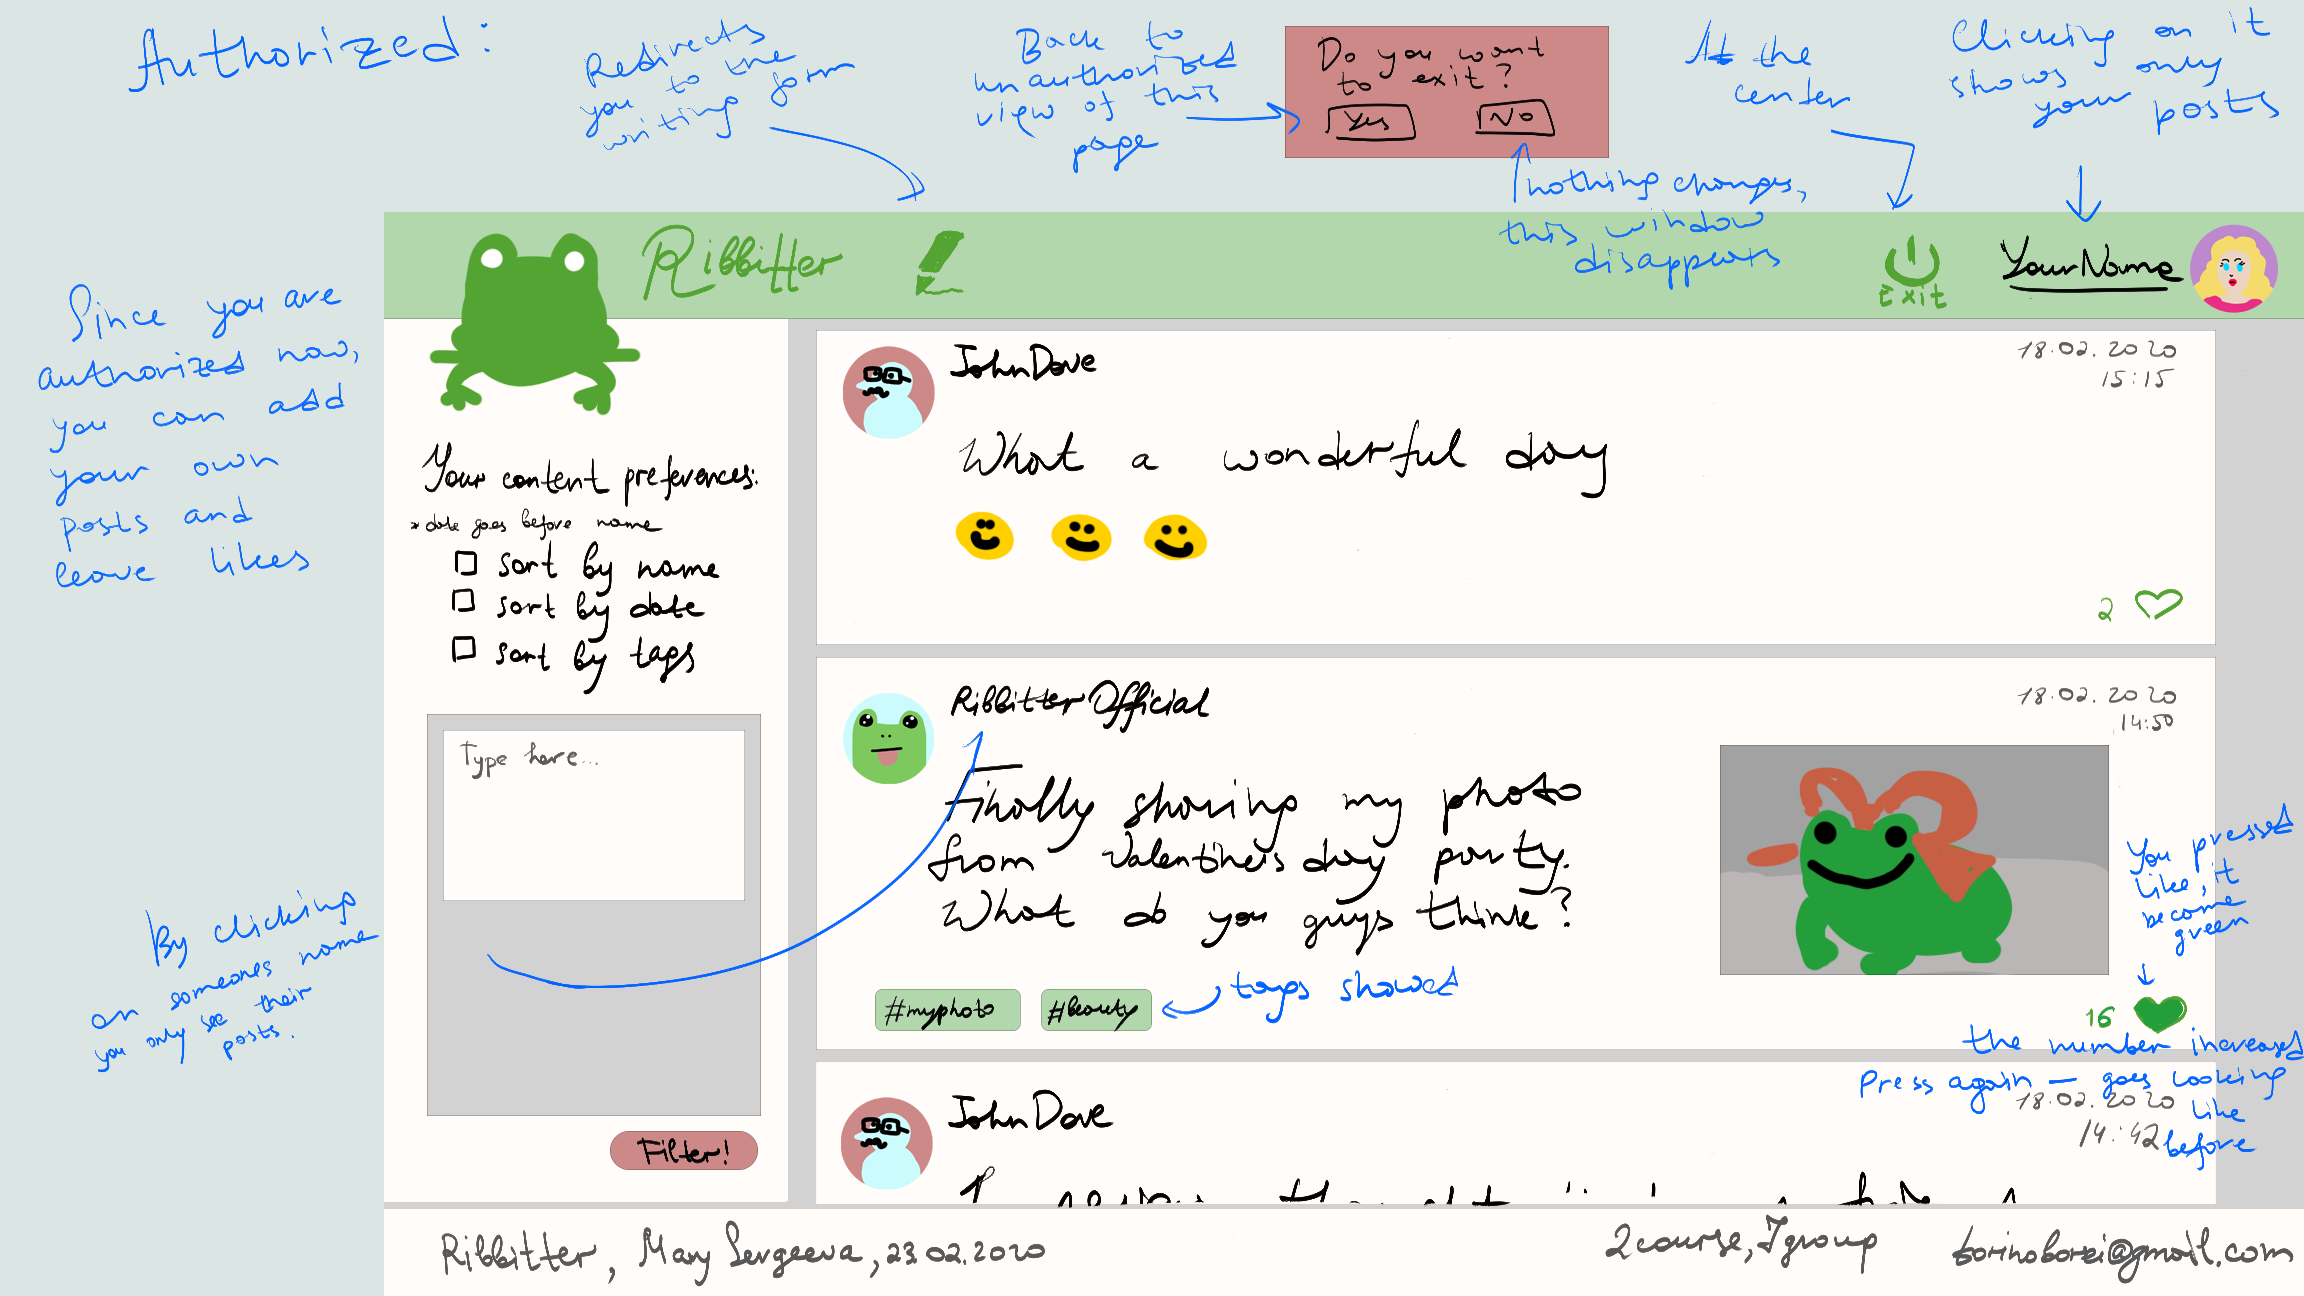 Authorized:
Redirects
you to the
writing form
Back to
unauthorized
view of this
page
Do you want
to exit?
Yes
No
nothing changes,
this window
disappears
At the
center
Clicking on it
shows only
your posts
Ribbitter
Exit
YourName
Since you are
authorized now,
you can add
your own
posts and
leave likes
Your content preferences:
* date goes before name
sort by name
sort by date
sort by tags
Type here...
Filter!
By clicking
on someones name
you only see their
posts.
JohnDove
18.02.2020
15:15
What a wonderful day
2
RibbitterOfficial
18.02.2020
14:50
Finally sharing my photo
from Valentine's day party.
What do you guys think?
#myphoto
#beauty
tags showed
You pressed
like, it
become
green
16
the number increased
Press again — goes looking
like
before
JohnDove
18.02.2020
14:42
Ribbitter, Mary Sergeeva, 23.02.2020
2course, 7group